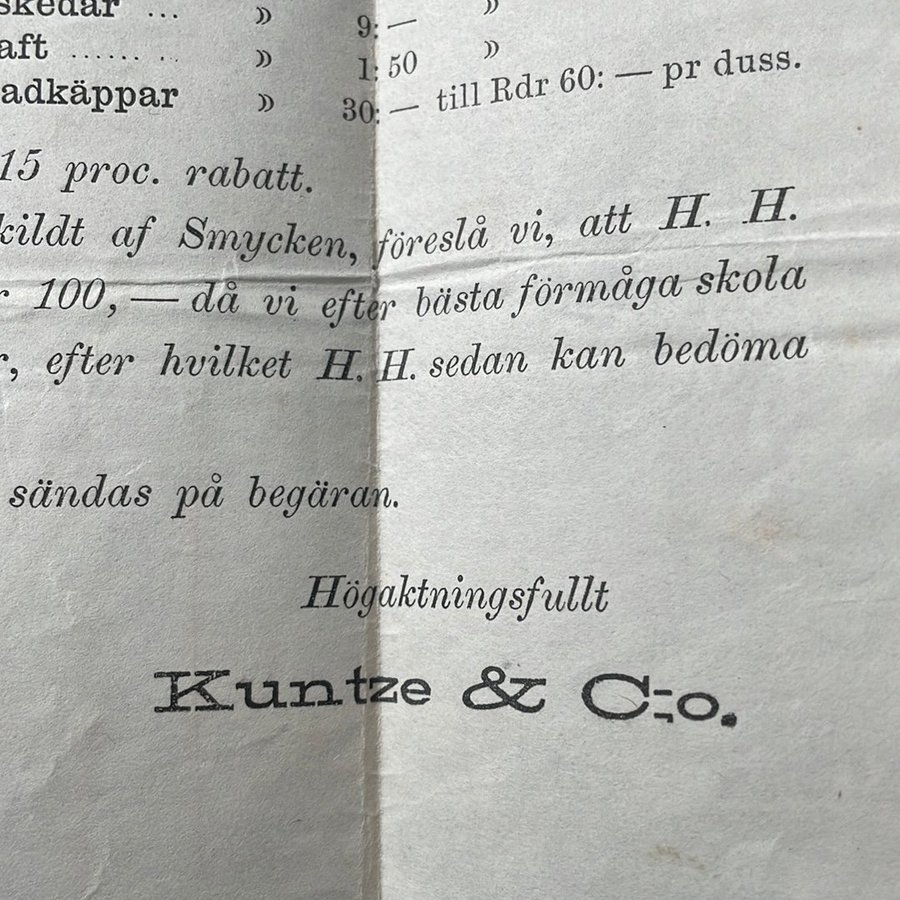 skedar ... » 9: — »
aft ...... .. » 1: 50 »
adkäppar » 30: — till Rdr 60: — pr duss.
15 proc. rabatt.
kildt af Smycken, föreslå vi, att H. H.
r 100,— då vi efter bästa förmåga skola
r, efter hvilket H. H. sedan kan bedöma
sändas på begäran.
Högaktningsfullt
Kuntze & C:o.